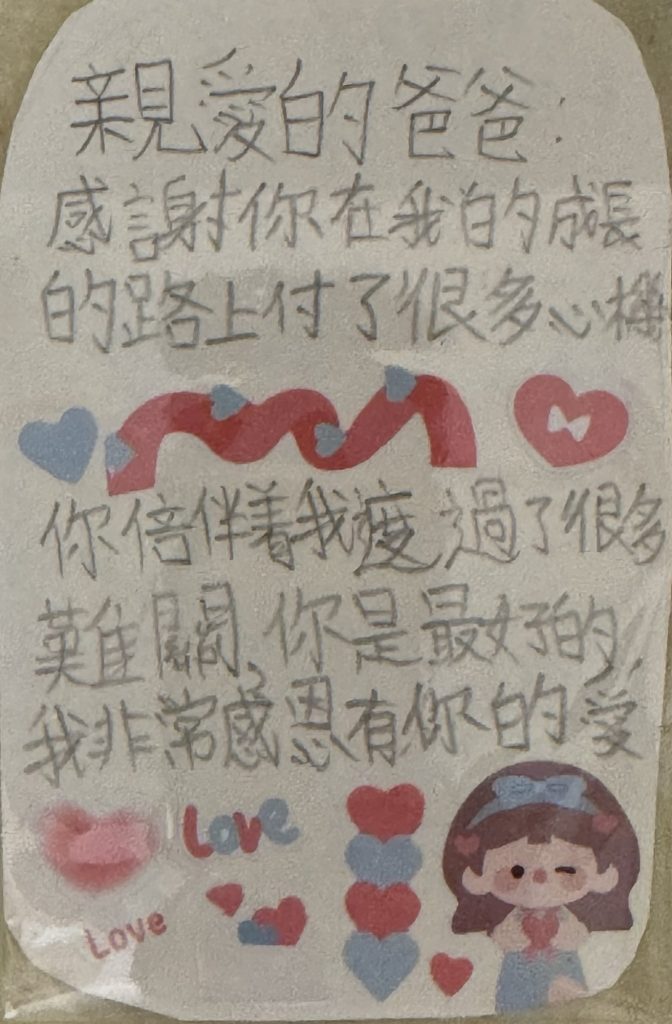 親愛的爸爸:
感謝你在我的成長
的路上付了很多心機
你倍伴着我度過了很多
難關,你是最好的,
我非常感恩有你的愛
Love
Love